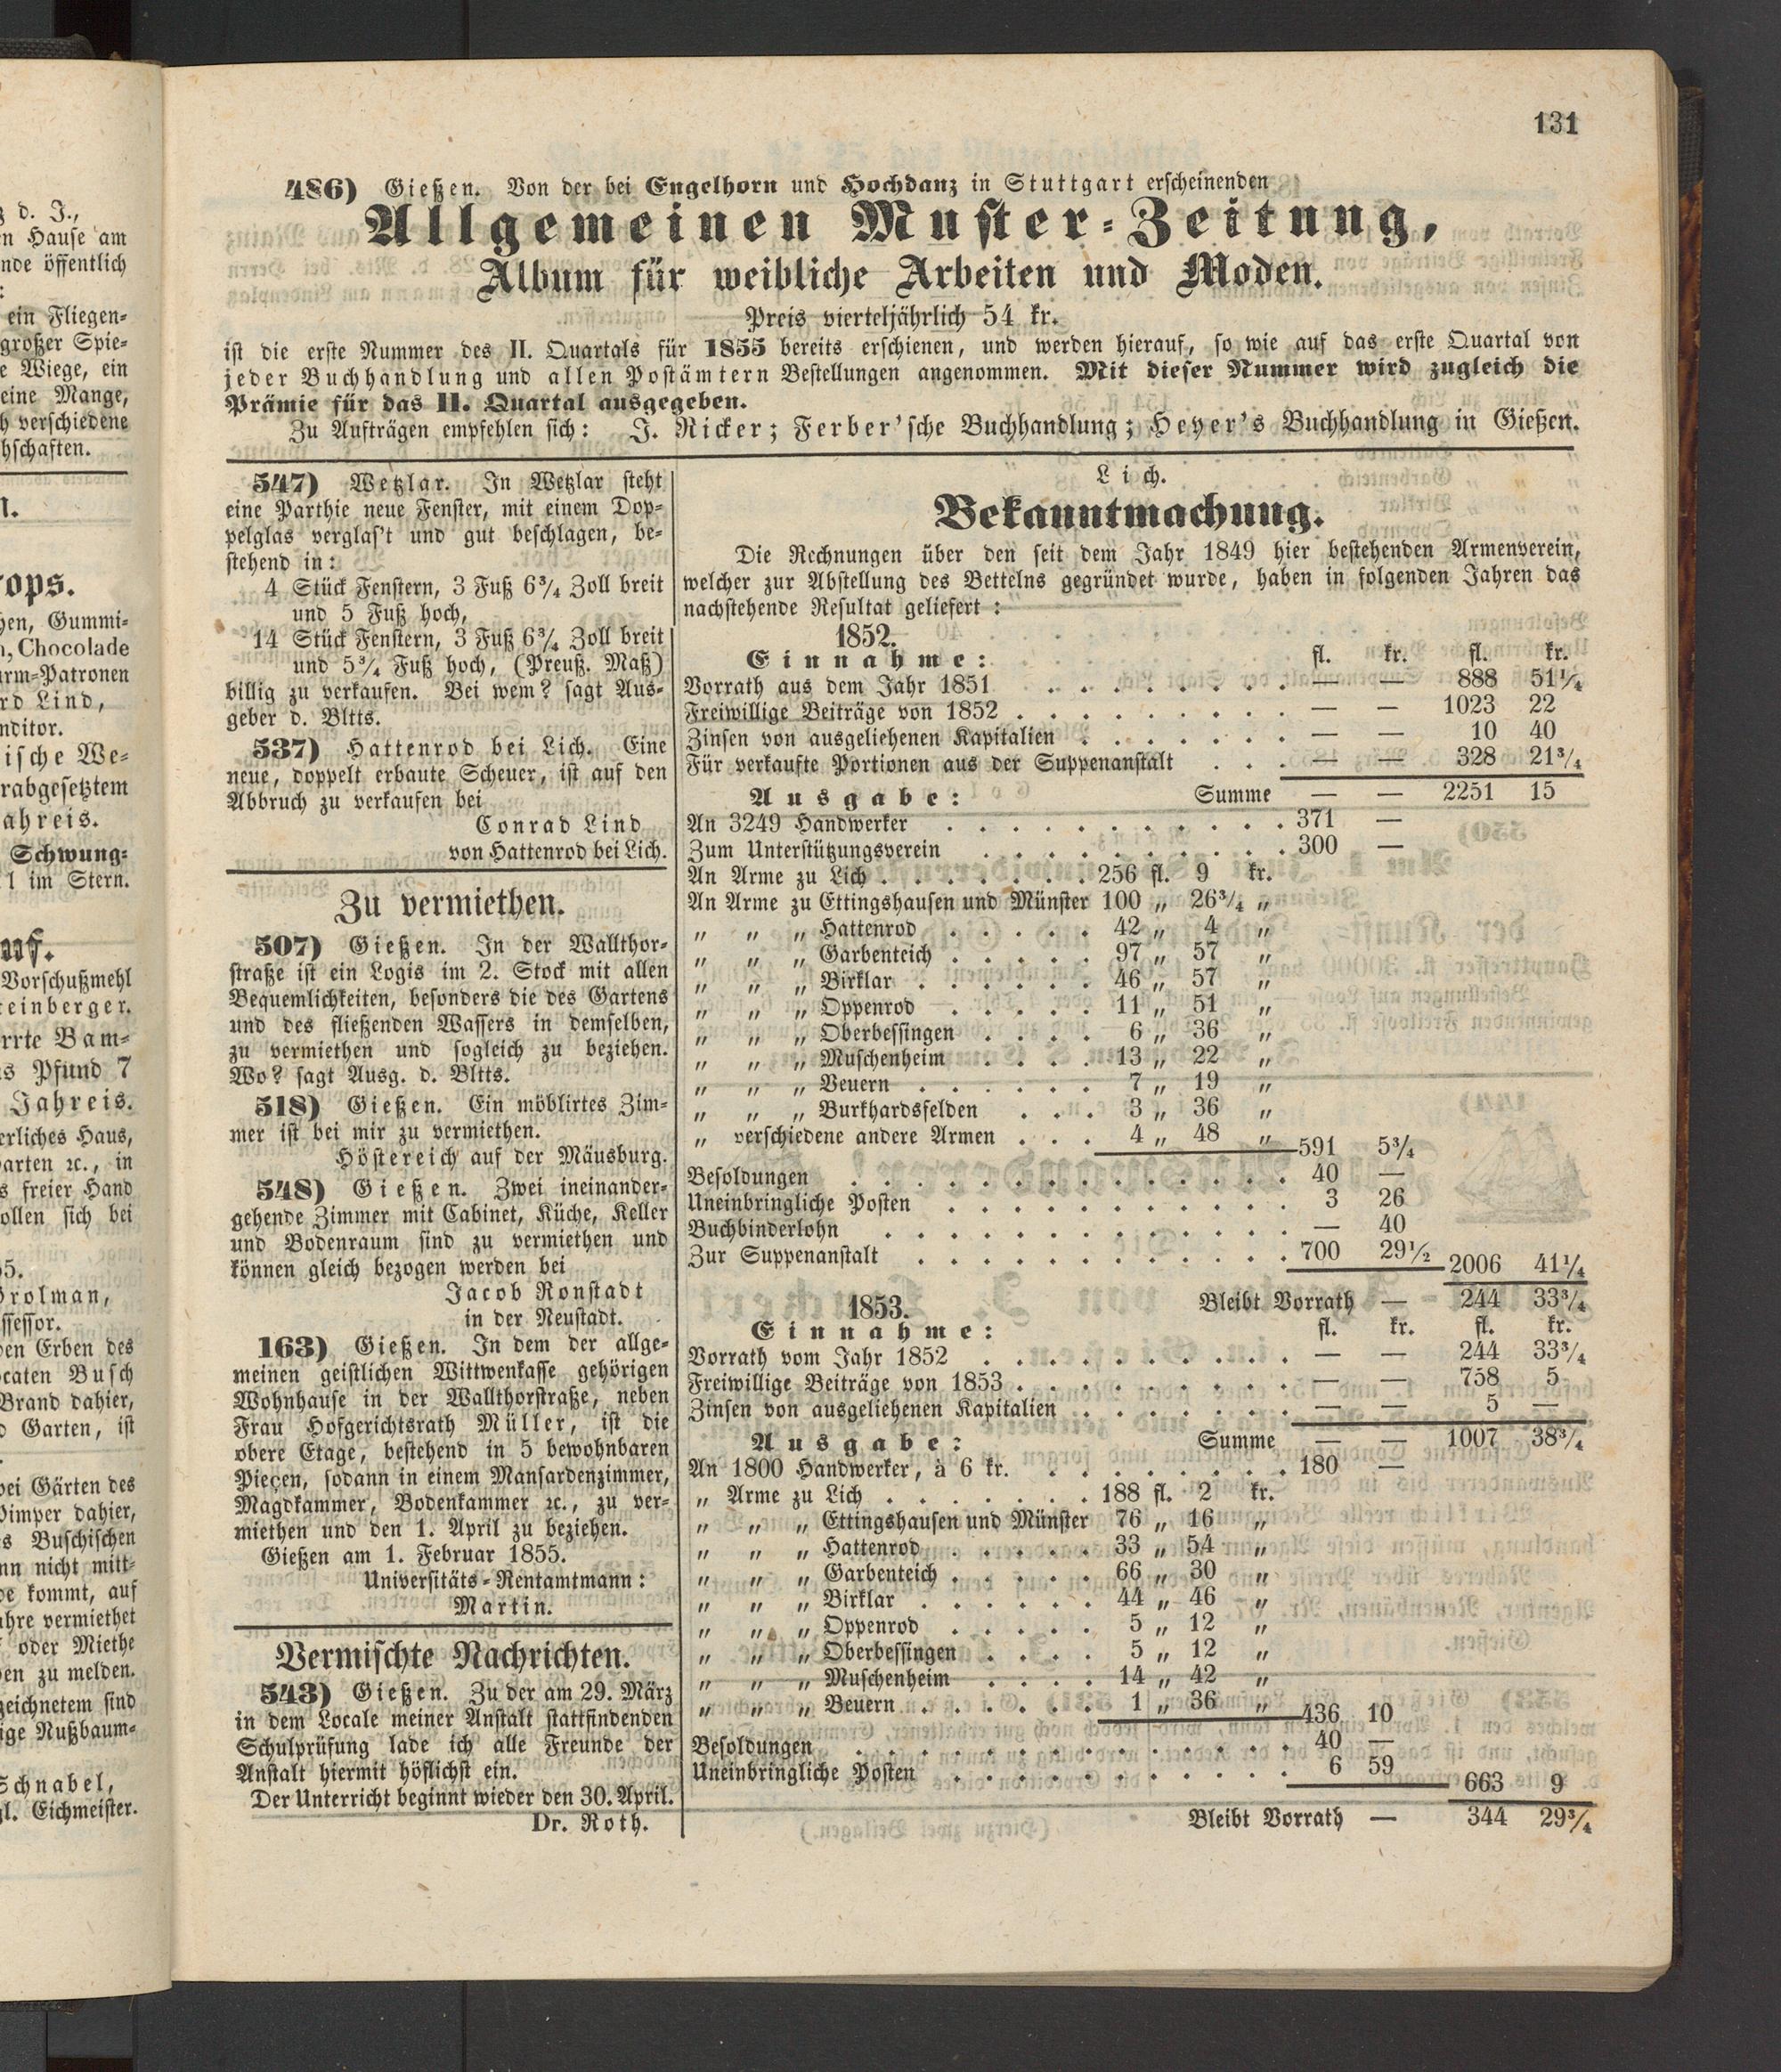 131
486) Gießen. Von der bei Engelhorn und Hochdanz in Stuttgart erscheinenden
Allgemeinen Muster-Zeitung,
Album für weibliche Arbeiten und Moden.
Preis vierteljährlich 54 kr.
ist die erste Nummer des II. Quartals für 1855 bereits erschienen, und werden hierauf, so wie auf das erste Quartal von
jeder Buchhandlung und allen Postämtern Bestellungen angenommen. Mit dieser Nummer wird zugleich die
Prämie für das II. Quartal ausgegeben.
Zu Aufträgen empfehlen sich: J. Ricker; Ferber'sche Buchhandlung; Heyer's Buchhandlung in Gießen.
547) Wetzlar. In Wetzlar steht
eine Parthie neue Fenster, mit einem Dop-
pelglas verglas't und gut beschlagen, be-
stehend in:
4 Stück Fenstern, 3 Fuß 6¾ Zoll breit
und 5 Fuß hoch,
14 Stück Fenstern, 3 Fuß 6¾ Zoll breit
und 5¾ Fuß hoch, (Preuß. Maß)
billig zu verkaufen. Bei wem? sagt Aus-
geber d. Bltts.
537) Hattenrod bei Lich. Eine
neue, doppelt erbaute Scheuer, ist auf den
Abbruch zu verkaufen bei
Conrad Lind
von Hattenrod bei Lich.
Zu vermiethen.
507) Gießen. In der Wallthor-
straße ist ein Logis im 2. Stock mit allen
Bequemlichkeiten, besonders die des Gartens
und des fließenden Wassers in demselben,
zu vermiethen und sogleich zu beziehen.
Wo? sagt Ausg. d. Bltts.
518) Gießen. Ein möblirtes Zim-
mer ist bei mir zu vermiethen.
Höstereich auf der Mäusburg.
548) Gießen. Zwei ineinander-
gehende Zimmer mit Cabinet, Küche, Keller
und Bodenraum sind zu vermiethen und
können gleich bezogen werden bei
Jacob Ronstadt
in der Neustadt.
163) Gießen. In dem der allge-
meinen geistlichen Wittwenkasse gehörigen
Wohnhause in der Wallthorstraße, neben
Frau Hofgerichtsrath Müller, ist die
obere Etage, bestehend in 5 bewohnbaren
Pieçen, sodann in einem Mansardenzimmer,
Magdkammer, Bodenkammer ꝛc., zu ver-
miethen und den 1. April zu beziehen.
Gießen am 1. Februar 1855.
Universitäts-Rentamtmann:
Martin.
Vermischte Nachrichten.
543) Gießen. Zu der am 29. März
in dem Locale meiner Anstalt stattfindenden
Schulprüfung lade ich alle Freunde der
Anstalt hiermit höflichst ein.
Der Unterricht beginnt wieder den 30. April.
Dr. Roth.
Lich.
Bekanntmachung.
Die Rechnungen über den seit dem Jahr 1849 hier bestehenden Armenverein,
welcher zur Abstellung des Bettelns gegründet wurde, haben in folgenden Jahren das
nachstehende Resultat geliefert:
1852.
Einnahme: fl. kr. fl. kr.
Vorrath aus dem Jahr 1851 . . . . . . . . . — — 888 51¼
Freiwillige Beiträge von 1852 . . . . . . . . . — — 1023 22
Zinsen von ausgeliehenen Kapitalien . . . . . . . — — 10 40
Für verkaufte Portionen aus der Suppenanstalt . . . — — 328 21¾
Ausgabe: Summe — — 2251 15
An 3249 Handwerker . . . . . . . . . . . . 371 —
Zum Unterstützungsverein . . . . . . . . . . 300 —
An Arme zu Lich . . . . . . . 256 fl. 9 kr.
An Arme zu Ettingshausen und Münster 100 „ 26¾ „
„ „ „ Hattenrod . . . . . 42 „ 4 „
„ „ „ Garbenteich . . . . . 97 „ 57 „
„ „ „ Birklar . . . . . . 46 „ 57 „
„ „ „ Oppenrod . . . . . 11 „ 51 „
„ „ „ Oberbessingen . . . . 6 „ 36 „
„ „ „ Muschenheim . . . . 13 „ 22 „
„ „ „ Beuern . . . . . . 7 „ 19 „
„ „ „ Burkhardsfelden . . . 3 „ 36 „
„ verschiedene andere Armen . . . 4 „ 48 „ 591 5¾
Besoldungen . . . . . . . . . . . . . . 40 —
Uneinbringliche Posten . . . . . . . . . . . 3 26
Buchbinderlohn . . . . . . . . . . . . . — 40
Zur Suppenanstalt . . . . . . . . . . . . 700 29½ 2006 41¼
Bleibt Vorrath — 244 33¾
1853.
Einnahme: fl. kr. fl. kr.
Vorrath vom Jahr 1852 . . . . . . . . . . — — 244 33¾
Freiwillige Beiträge von 1853 . . . . . . . . . — — 758 5
Zinsen von ausgeliehenen Kapitalien . . . . . . . — — 5 —
Ausgabe: Summe — — 1007 38¾
An 1800 Handwerker, à 6 kr. . . . . . . . . . 180 —
„ Arme zu Lich . . . . . . . 188 fl. 2 kr.
„ „ „ Ettingshausen und Münster 76 „ 16 „
„ „ „ Hattenrod . . . . . 33 „ 54 „
„ „ „ Garbenteich . . . . . 66 „ 30 „
„ „ „ Birklar . . . . . . 44 „ 46 „
„ „ „ Oppenrod . . . . . 5 „ 12 „
„ „ „ Oberbessingen . . . . 5 „ 12 „
„ „ „ Muschenheim . . . . 14 „ 42 „
„ „ „ Beuern . . . . . . 1 „ 36 „ 436 10
Besoldungen . . . . . . . . . . . . . . 40 —
Uneinbringliche Posten . . . . . . . . . . . 6 59 663 9
Bleibt Vorrath — 344 29¾